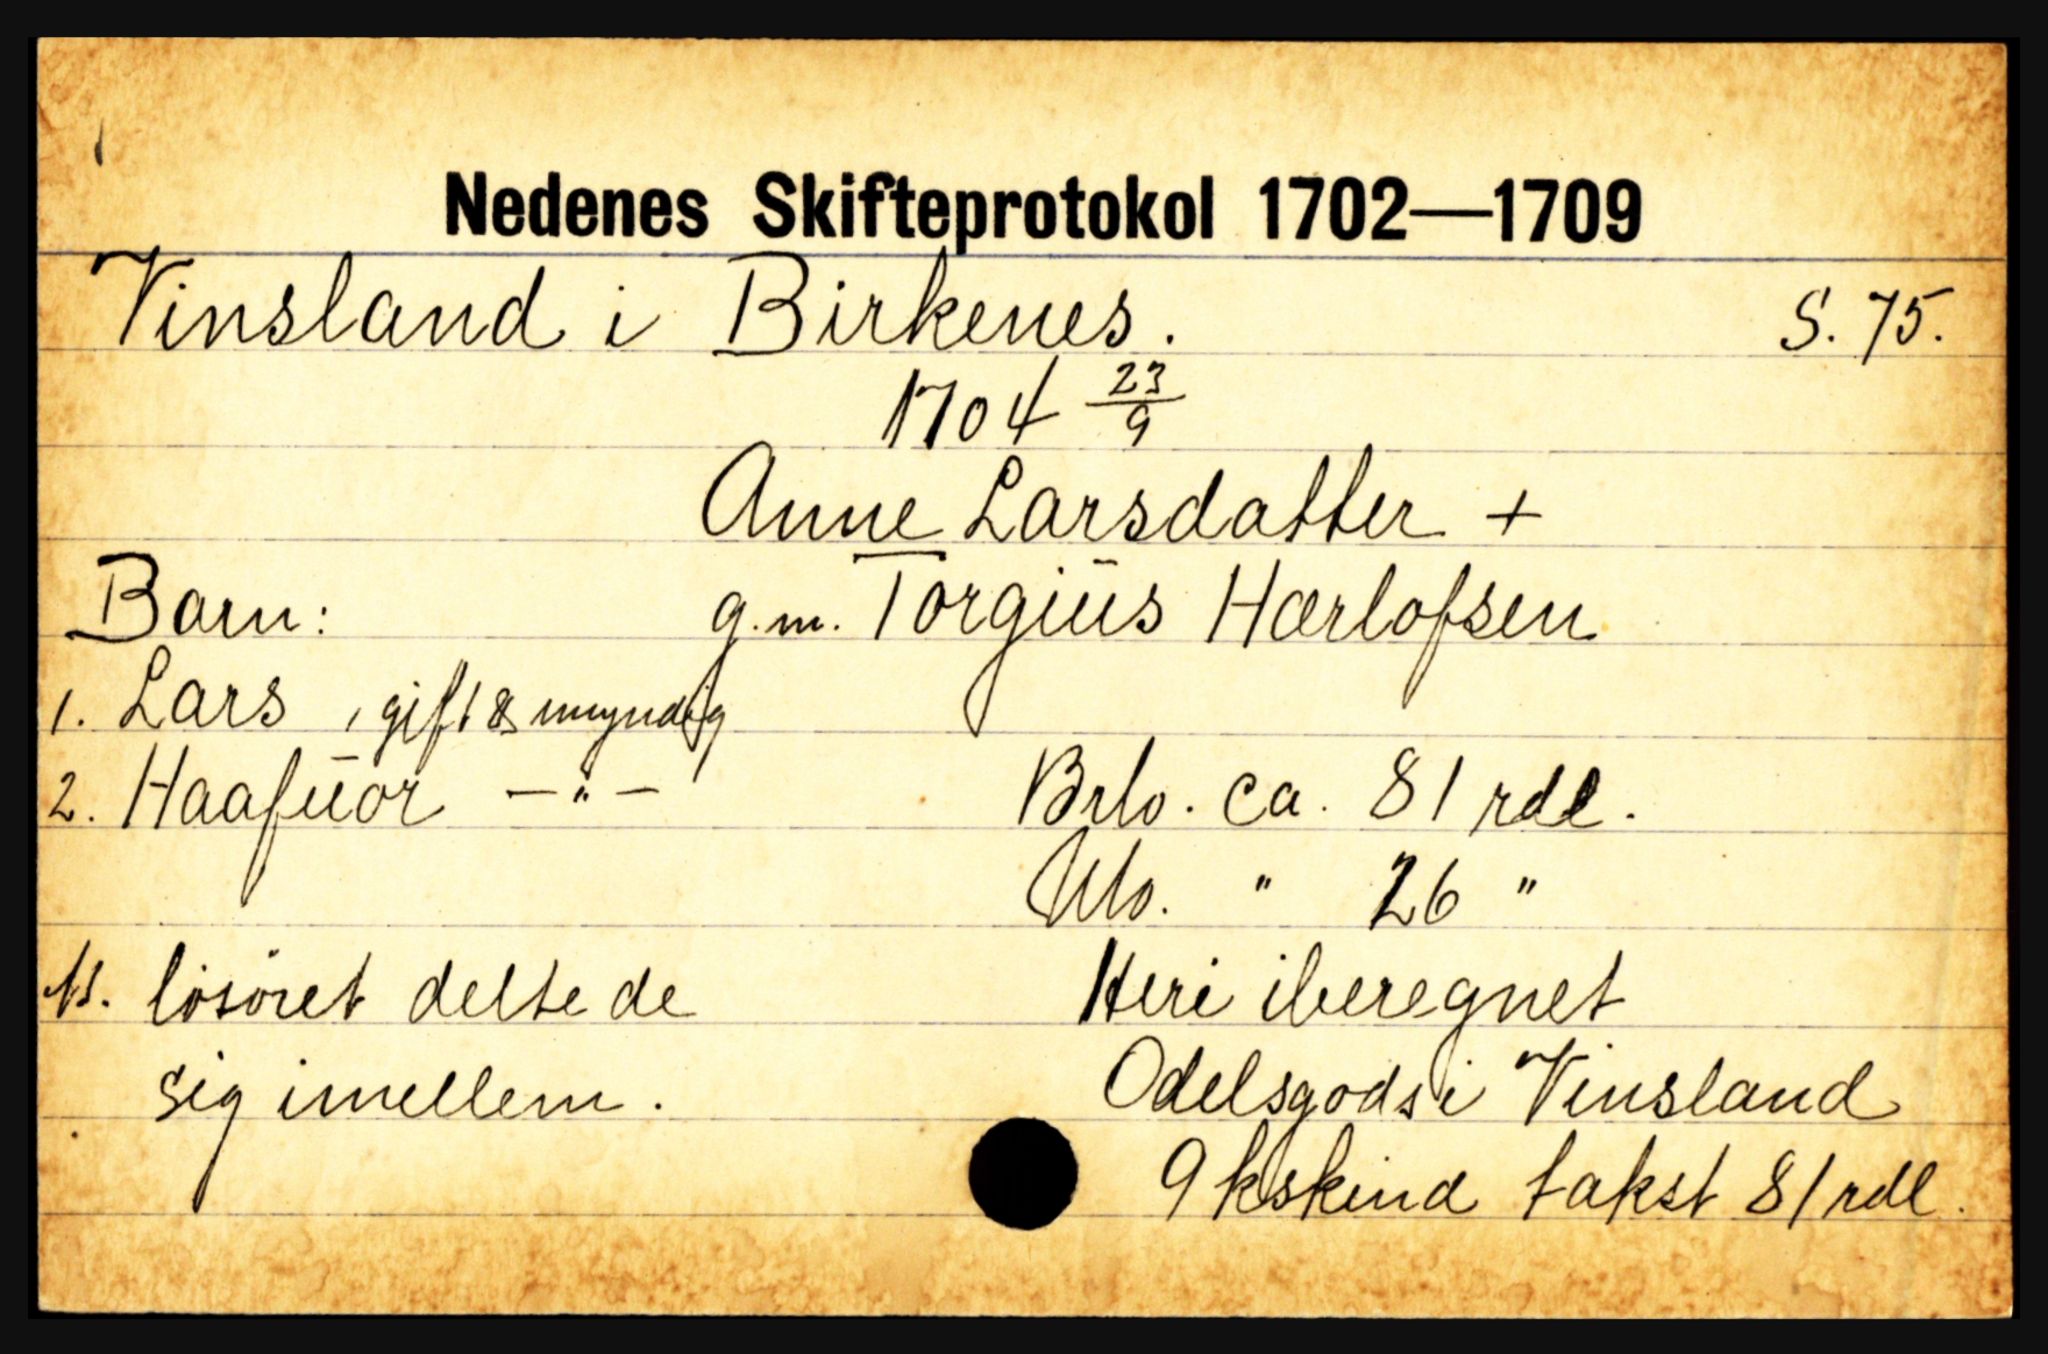 Nedenes Skifteprotokol 1702—1709
Vinsland i Birkenes. S. 75.
1704 23/9
Anne Larsdatter +
Barn: g.m. Torgiüs Hærlofsen
1. Lars, gift & myndig
2. Haafüor —"— Brlo. ca. 81 rdl.
Nlo. " 26 "
løsøret deltede Heri iberegnet
sig imellem. Odelsgods i Vinsland
9 kskind takst 81 rdl.